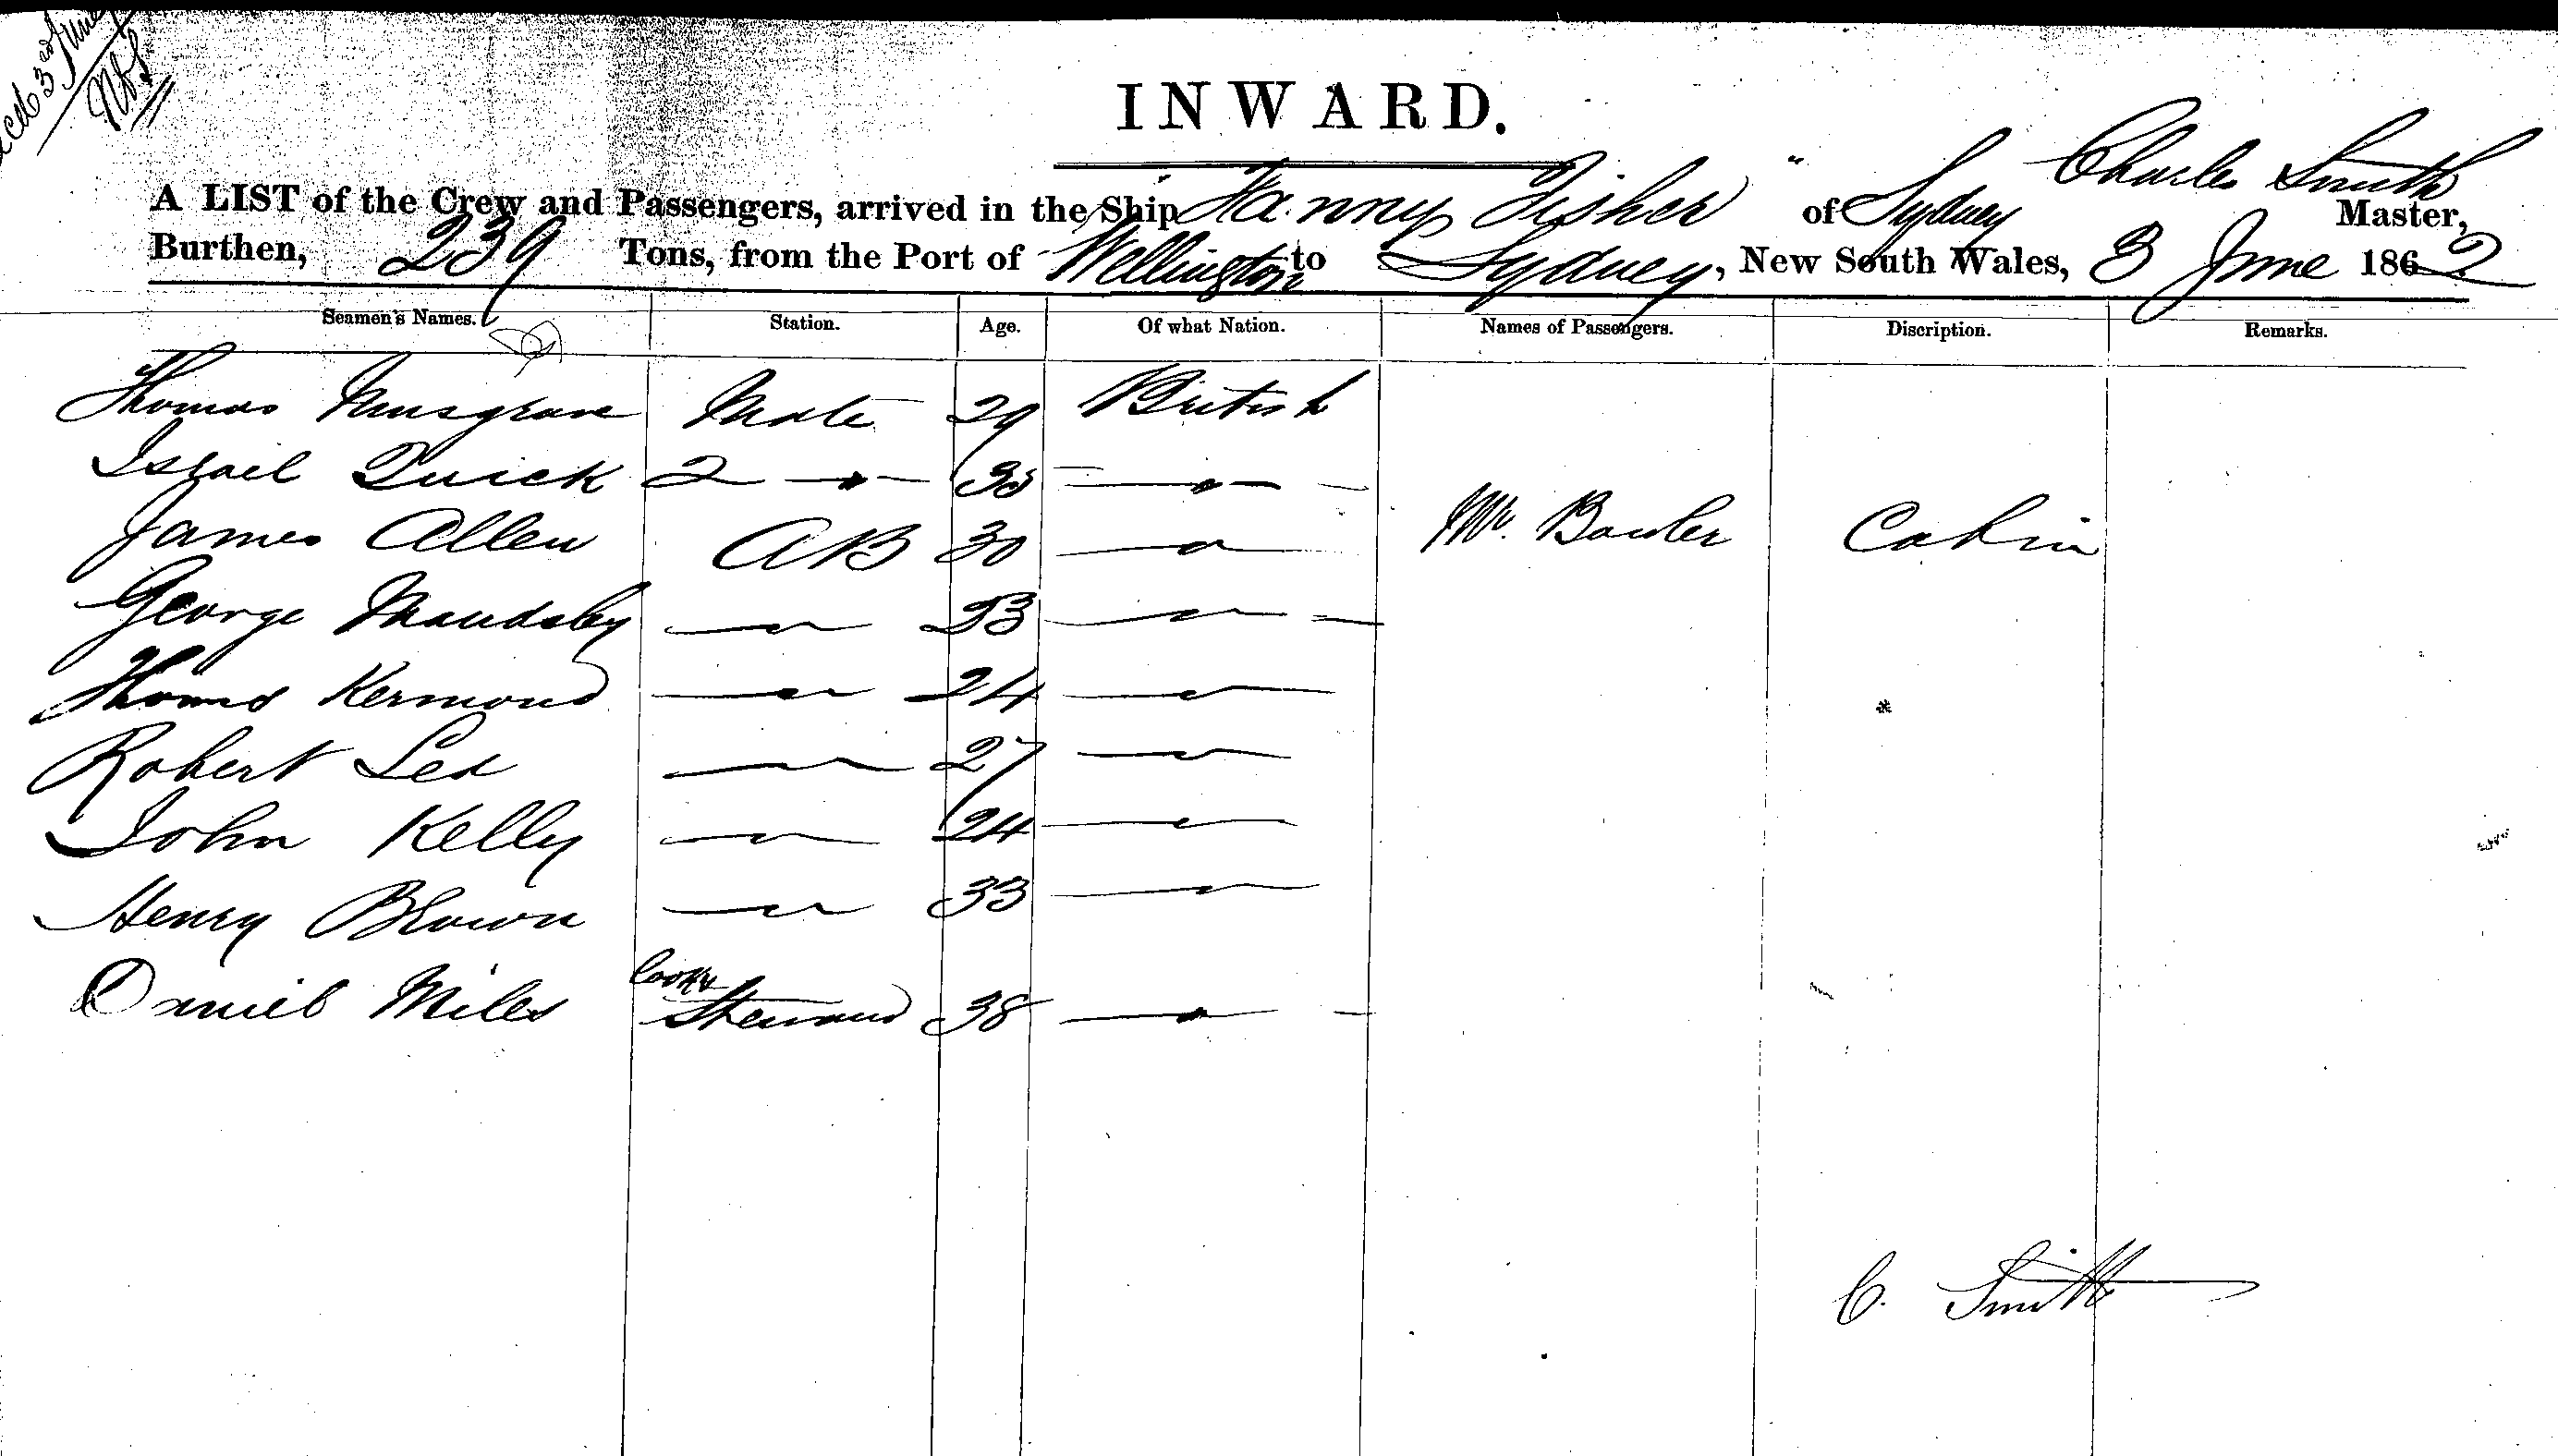 3rd June
INWARD.
Charles Smith
A LIST of the Crew and Passengers, arrived in the Ship Fanny Fisher " of Sydney Master,
Burthen, 239 Tons, from the Port of Wellington to Sydney, New South Wales, 3 June 1862
Seamen's Names. Station. Age. Of what Nation. Names of Passengers. Discription. Remarks.
Thomas Musgrave Mate 29 British
Israel Quick 2 — " — — " —
James Allen AB 30 — " — Mr. Bowler Cabin
George Maudsley — " — 23 — " —
Thomas Kermond — " — 24 — " —
Robert — " — 27 — " —
John Kelly — " — 24 — " —
Henry Brown — " — 33 — " —
Daniel Miles Cook & Steward 38 — " —
C. Smith